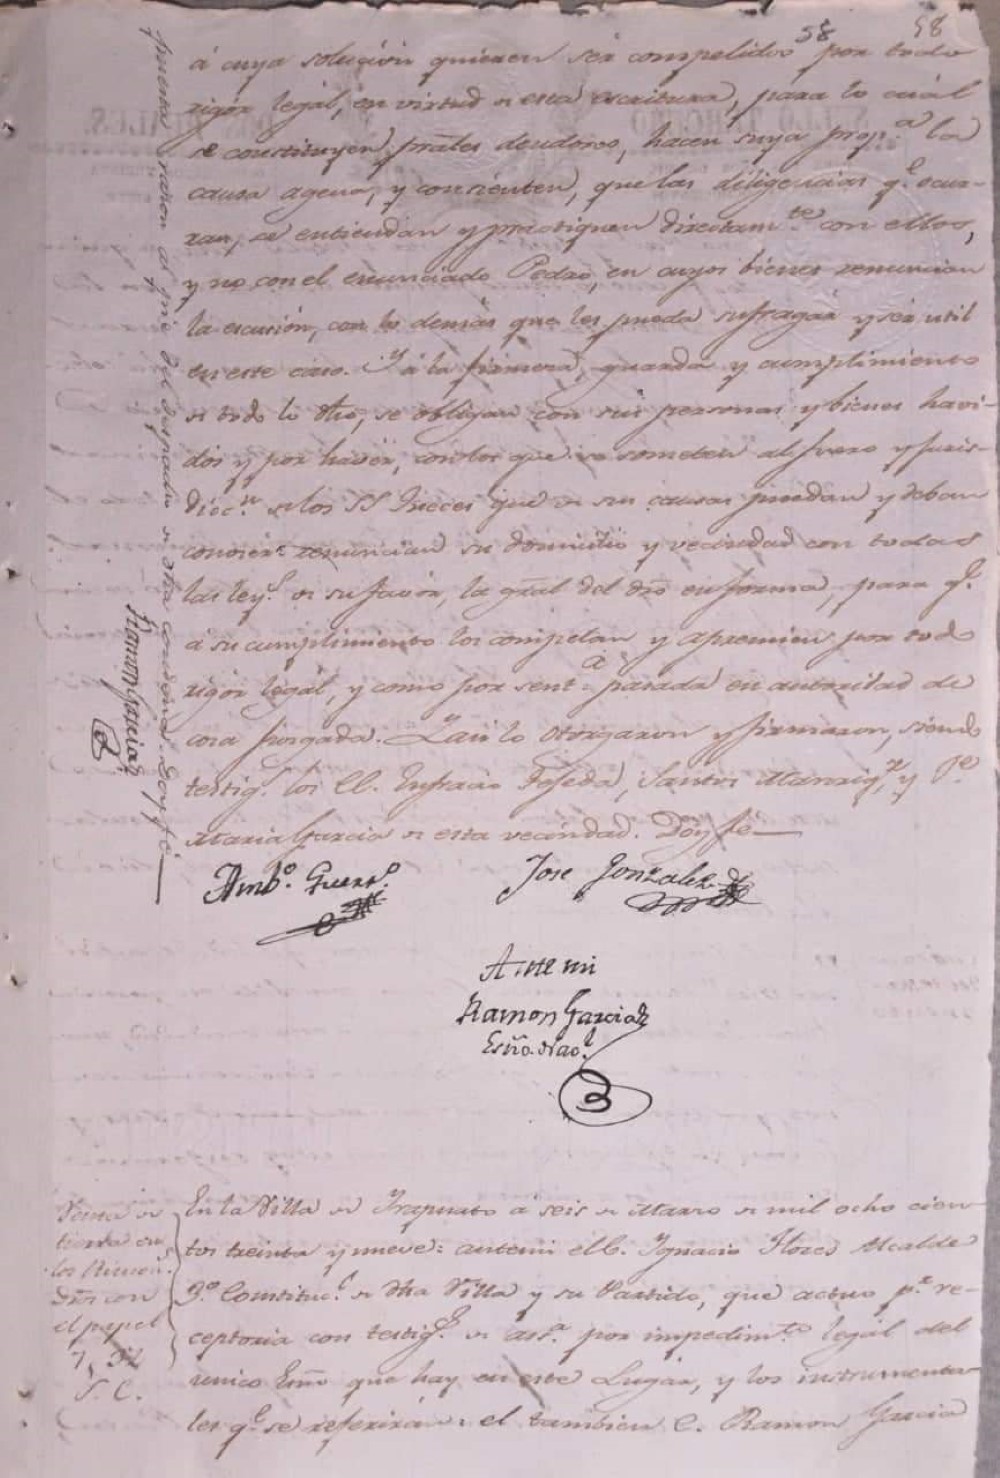 58 58
á cuya solución quieren ser compelidos por todo
rigór legál, en virtud de esta escritura, para lo cuál
se constituyen prales deudores, hacen suya prop.ª la
causa agena, y consienten, que las diligencias q.e ocur-
ran, se entiendan y practiquen directam.te con ellos,
y no con el enunciado Pedro, en cuyos bienes renuncian
la escusión, con lo demás que les pueda sufragár y sér util
en este caso. Y á la firmeza, guarda y cumplimiento
de todo lo dho, se obligan con sus personas y bienes havi-
dos y por havér, con los que se someten al fuero y juris-
dicc.n de los SS Jueces que de sus causas puedan y deban
conocér: renuncian su domicilio y vecindad con todas
las ley.s de su favór, la gral del dro en forma, para q.e
á su cumplimiento los compelan y apremien por todo
rigór legál, y como por sent.ª pasada en autoridad de
cosa juzgada. Y así lo otorgaron y firmaron, siendo
testig.s los CC. Eufracio Tejeda, Santos Manriq.z y J.e
Maria Garcia de esta vecindad. Doy fé
Amb.o Guerr.o
Jose Gonzalez
Ante mi
Ramon Garcia
Esño. nac.l
puesta razon al pie del de dha Doy fé
Ramon Garcia
Venta de
tierra en
los Rincon.s
Dros con
el papel
7, 52
S. C.
En la Villa de Yrapuato á seis de Marzo de mil ocho cien-
tos treinta y nueve: antemi el C. Ygnacio Flores Alcalde
3.o Constituc.l de dha Villa y su Partido, que actuo p.r re-
ceptoria con testig.s de as.ª por impedim.to legál del
unico Esño que hay en este Lugár, y los instrumenta-
les q.e se referirán: el tambien C. Ramon Garcia